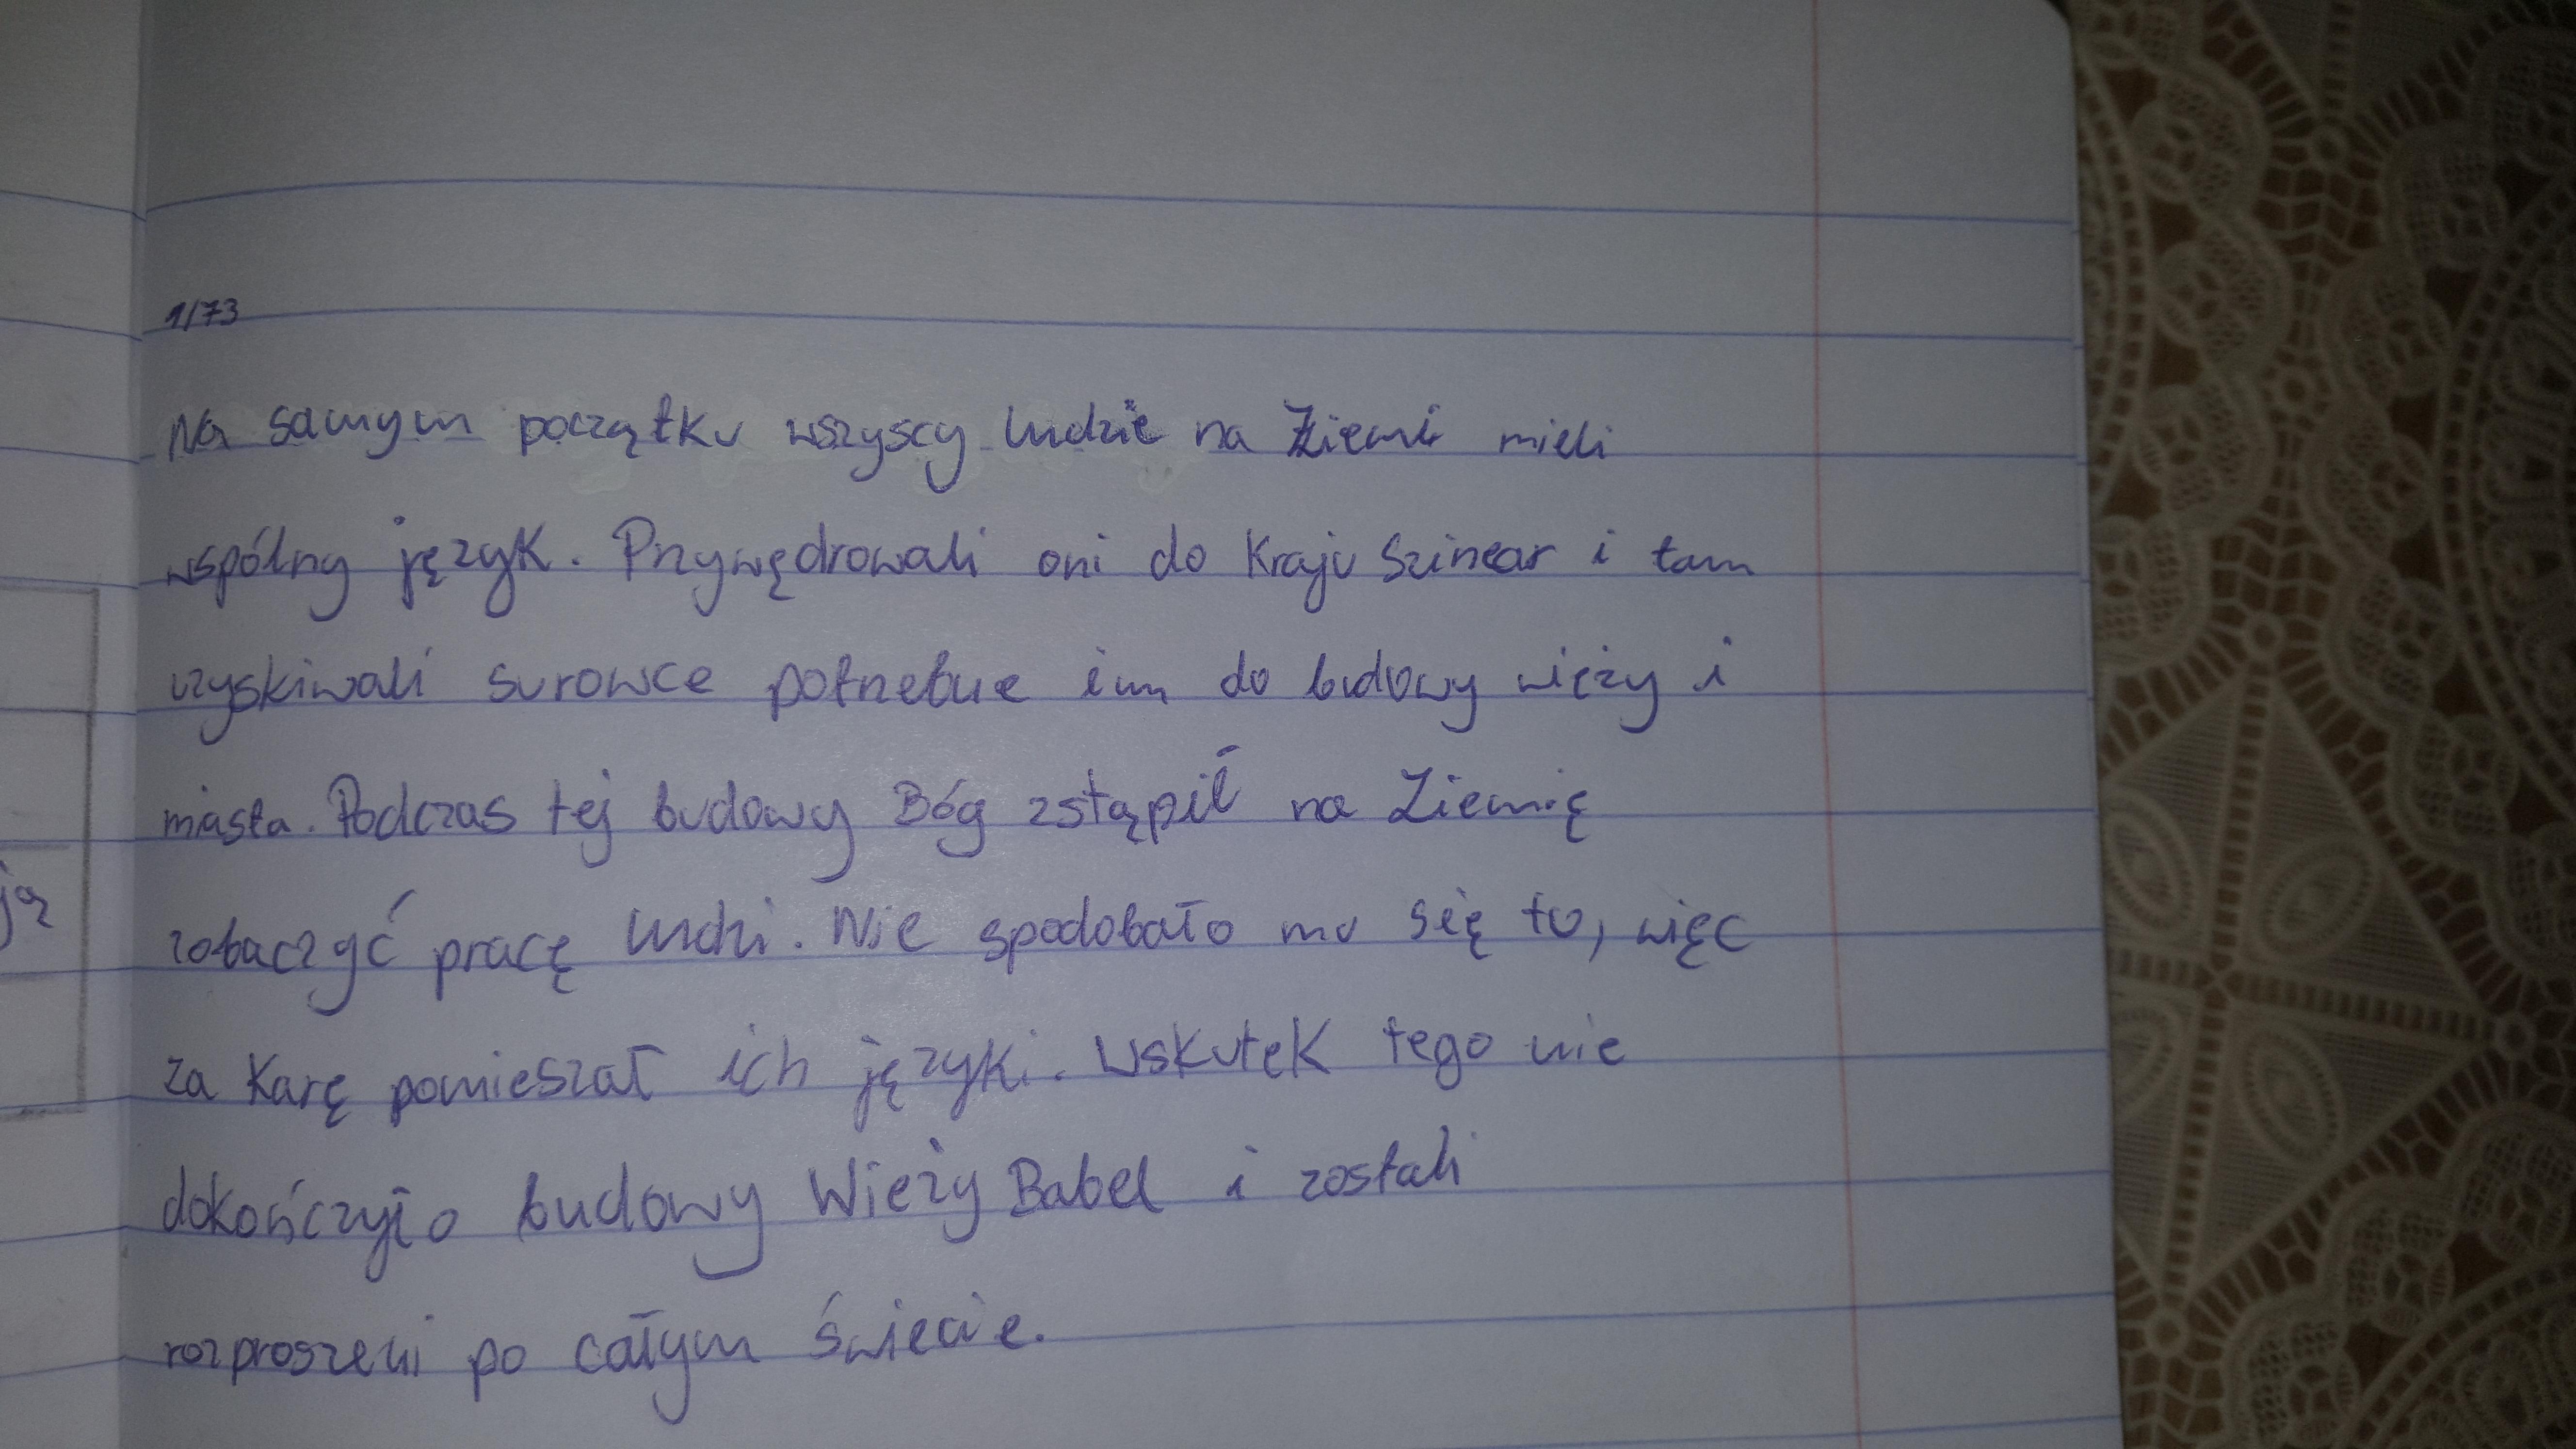 1/73
Na samym początku wszyscy ludzie na Ziemi mieli
wspólny język. Przywędrowali oni do Kraju Szinear i tam
uzyskiwali surowce potrzebne im do budowy wieży i
miasta. Podczas tej budowy Bóg zstąpił na Ziemię
ją
zobaczyć pracę ludzi. Nie spodobało mu się to, więc
za karę pomieszał ich języki. Wskutek tego nie
dokończyło budowy Wieży Babel i zostali
rozproszeni po całym świecie.